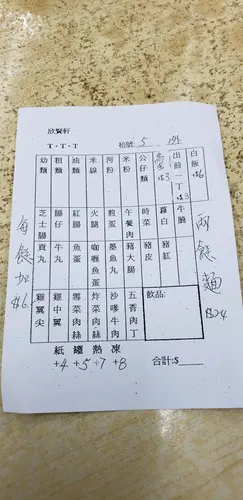 欣賢軒
T・T・T
枱號: 5
白飯 +$6
出前一丁 +$3
烏冬 +$3
公仔麵
米粉
河粉
米線
油麵
粗麵
幼麵
牛腩
蘿白
時菜
午餐肉
煎蛋
火腿
紅腸
腸仔
芝士腸
豬紅
豬皮
豬大腸
墨魚丸
咖喱魚蛋
魚蛋
牛丸
貢丸
飲品:
五香肉丁
沙嗲牛肉
炸菜肉絲
雪菜肉絲
雞中翼
雞翼尖
兩餸麵 $24
每餸加 $6
紙 罐 熱 凍
+4 +5 +7 +8
合計:$